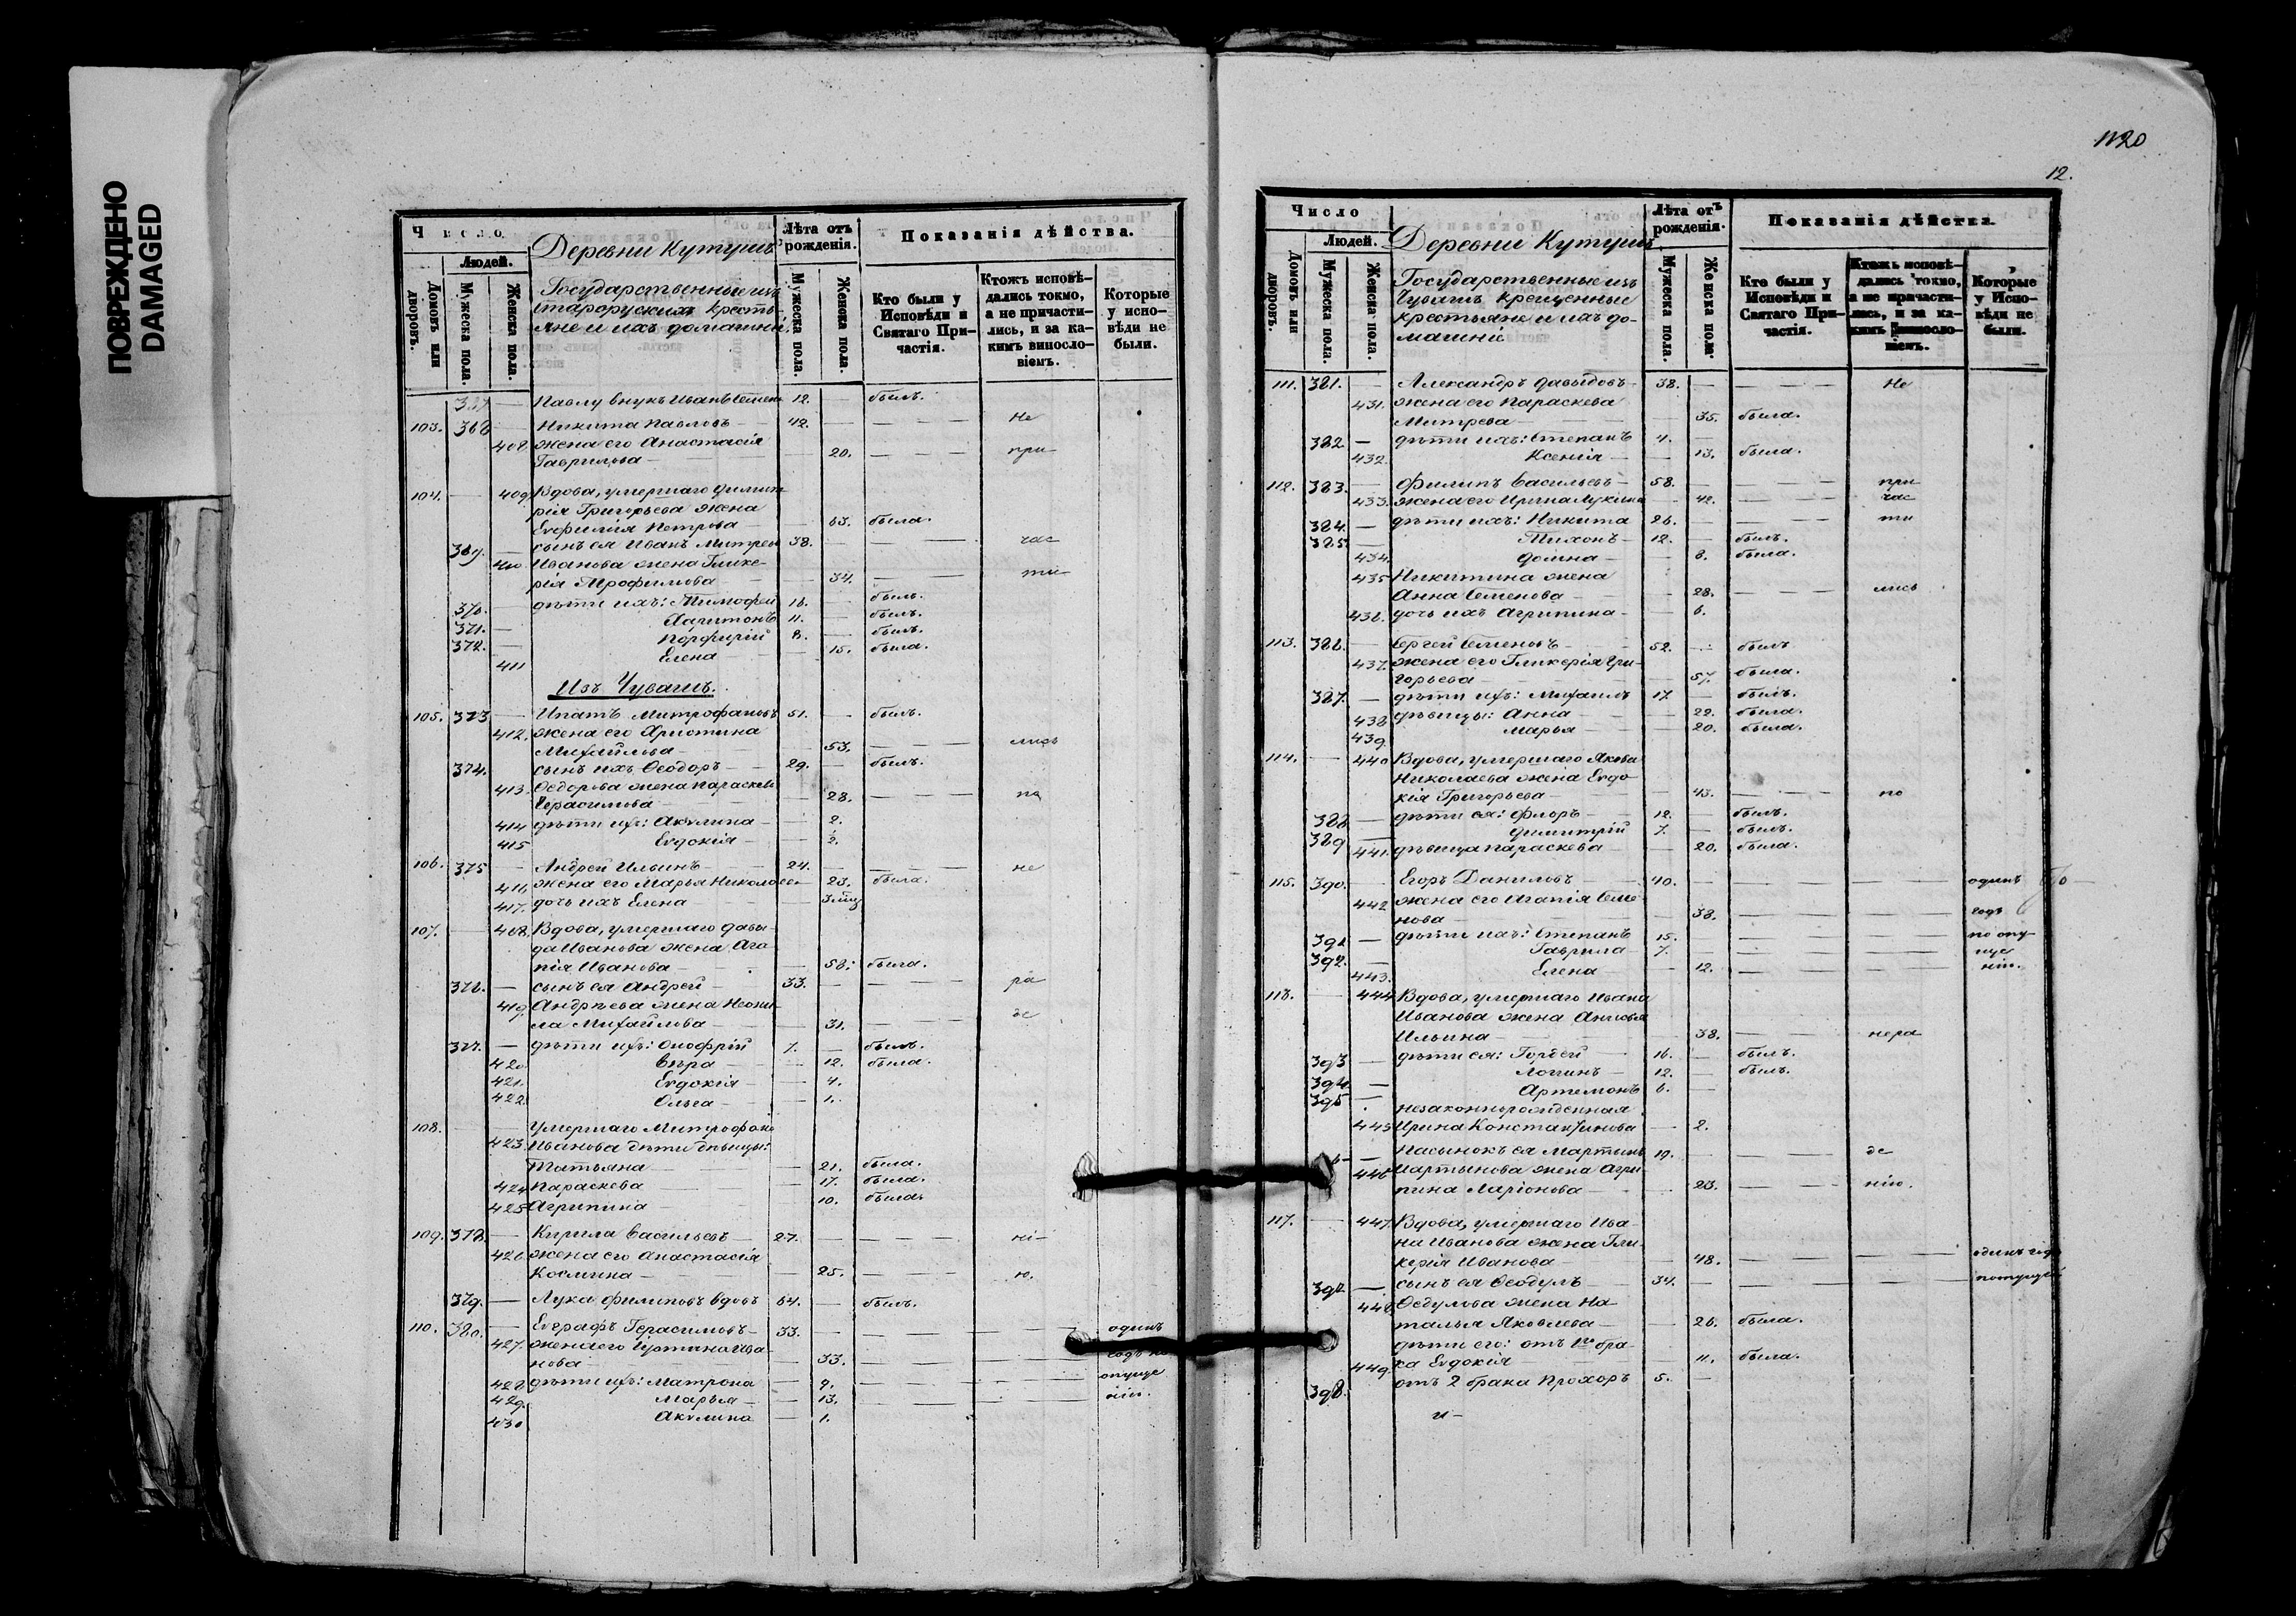 ПОВРЕЖДЕНО
DAMAGED
Число
Людей.
Домовъ или дворовъ.
Мужеска пола.
Женска пола.
Деревни Кутушъ
Государственные изъ
старорускихъ кресть-
яне и ихъ домашніе.
Лѣта отъ рожденія.
Мужеска пола.
Женска пола.
Показанія дѣйства.
Кто были у Исповѣди и Святаго Причастія.
Ктожъ исповѣдались токмо, а не причастились, и за какимъ винословіемъ.
Которые у исповѣди не были.
— Павлу внукъ Иванъ Семен 12. — былъ.
103. 368 Никита Павловъ — 42. — — — Не
408. жена его Анастасія
Гаврилова — — 20. — — при
104. — 409. Вдова, умершаго Димит-
рія Григорьева жена
Евфимія Петрова — — 63. была.
369. — сынъ ея Иванъ Митрев 38. — — — час
410 Иванова жена Глике-
рія Трофимова — — 34. — — ти
370. — дѣти ихъ: Тимофей 16. — былъ.
371. — Харитонъ 11. — былъ.
372. — Порфирій 8. — былъ.
411 Елена — — 15. была.
Изъ Чувашъ.
105. 373 — Ипатъ Митрофановъ 51. — былъ.
412. жена его Христина
Михайлова — — 53. — — лись
374. сынъ ихъ Ѳеодоръ — 29. — былъ.
413. Ѳедорова жена Параскева
Герасимова — — 28. — — по
414 дѣти ихъ: Акулина — — 2.
415 Евдокія — — ½.
106. 375 — Андрей Ильинъ — 24. — — — не
416 жена его Марья Николаев 23. была.
417. дочь ихъ Елена — — 3 мѣц
107. — 408. Вдова, умершаго Давы-
да Иванова жена Ага-
пія Иванова — — 58. была.
376. — сынъ ея Андрей — 33. — — — ра
419. Андреева жена Неони-
ла Михайлова — — 31. — — де
377. — дѣти ихъ: Онофрій 7. — былъ.
420. Вѣра — — 12. была.
421. Евдокія — — 4.
422. Ольга — — 1.
108. — — Умершаго Митрофана
423. Иванова дѣти дѣвицы:
Татьяна — — 21. была.
424 Параскева — — 17. была.
425 Агрипина — — 10. была.
109. 378. — Кирила Васильевъ — 27. — — — ні-
426. жена его Анастасія
Космина — — 25. — — ю.
379. — Лука Филиповъ вдовъ 64. — былъ.
110. 380. — Евграфъ Герасимовъ — 33. — — — одинъ
427. жена его Устина Ива-
нова — — 33. — — годъ по
428 дѣти ихъ: Матрона — 9. — — опуще
429. Марья — — 13. — — нію.
430 Акулина — 1.
1120
12.
Число
Людей.
Домовъ или дворовъ.
Мужеска пола.
Женска пола.
Деревни Кутушъ
Государственные изъ
Чувашъ крещенные
крестьяне и ихъ до-
машніе
Лѣта отъ рожденія.
Мужеска пола.
Женска пола.
Показанія дѣйства.
Кто были у Исповѣди и Святаго Причастія.
Ктожъ исповѣдались токмо, а не причастились, и за какимъ винословіемъ.
Которые у Исповѣди не были.
111. 381. — Александръ Давыдовъ 38. — — — Не
431. жена его Параскева
Митрева — — 35. была.
382 — дѣти ихъ: Степанъ 4. —
432. Ксенія — — 13. была.
112. 383. — Филипъ Васильевъ — 58. — — — при
433. жена его Ирина Лукина — 42. — — час
384. — дѣти ихъ: Никита 26. — — — ти
385. — Тихонъ — 12. — былъ.
434. Домна — — 8. была.
435 Никитина жена
Анна Семенова — — 28. — — лись
436. дочь ихъ Агрипина — — 6.
113. 386. — Сергей Семеновъ — 52. — былъ
437. жена его Гликерія Гри-
горьева — — 57. была.
387. — дѣти ихъ: Михаилъ 17. — былъ.
438 дѣвицы: Анна — — 22. была.
439. Марья — — 20. была.
114. — 440 Вдова, умершаго Якова
Николаева жена Евдо-
кія Григорьева — — 43. — — по
388 — дѣти ея: Флоръ — 12. — былъ.
389 — Димитрій 7. — былъ.
441. дѣвица Параскева — — 20. была.
115. 390. — Егоръ Даниловъ — 40. — — — одинъ
442 жена его Агапія Семе-
нова — — 38. — — годъ
391 — дѣти ихъ: Степанъ 15. — — — по опу
392. — Гаврила 7. — — — ще
443. Елена — — 12. — — нію.
— 444 Вдова, умершаго Ивана
Иванова жена Анисья
Ильина — — 38. — — нера
393 — дѣти ея: Гордей 16. — былъ.
394. — Логинъ — 12. — былъ.
395 Артемонъ 6. —
незаконнорожденная
445 Ирина Константинова — 2.
— Пасынокъ ея Мартынъ 19. — — — де
446 Мартынова жена Агри-
пина Ларіонова — — 23. — — нію.
117. — 447. Вдова, умершаго Ива-
на Иванова жена Гли-
керія Иванова — — 48. — — одинъ годъ
397 — сынъ ея Ѳеодулъ 34. — — —
448. Ѳедулова жена На-
талья Яковлева — — 26. была.
дѣти его: отъ 1го бра-
449. ка Евдокія — — 11. была.
398. отъ 2 брака Прохоръ 5. —
и —